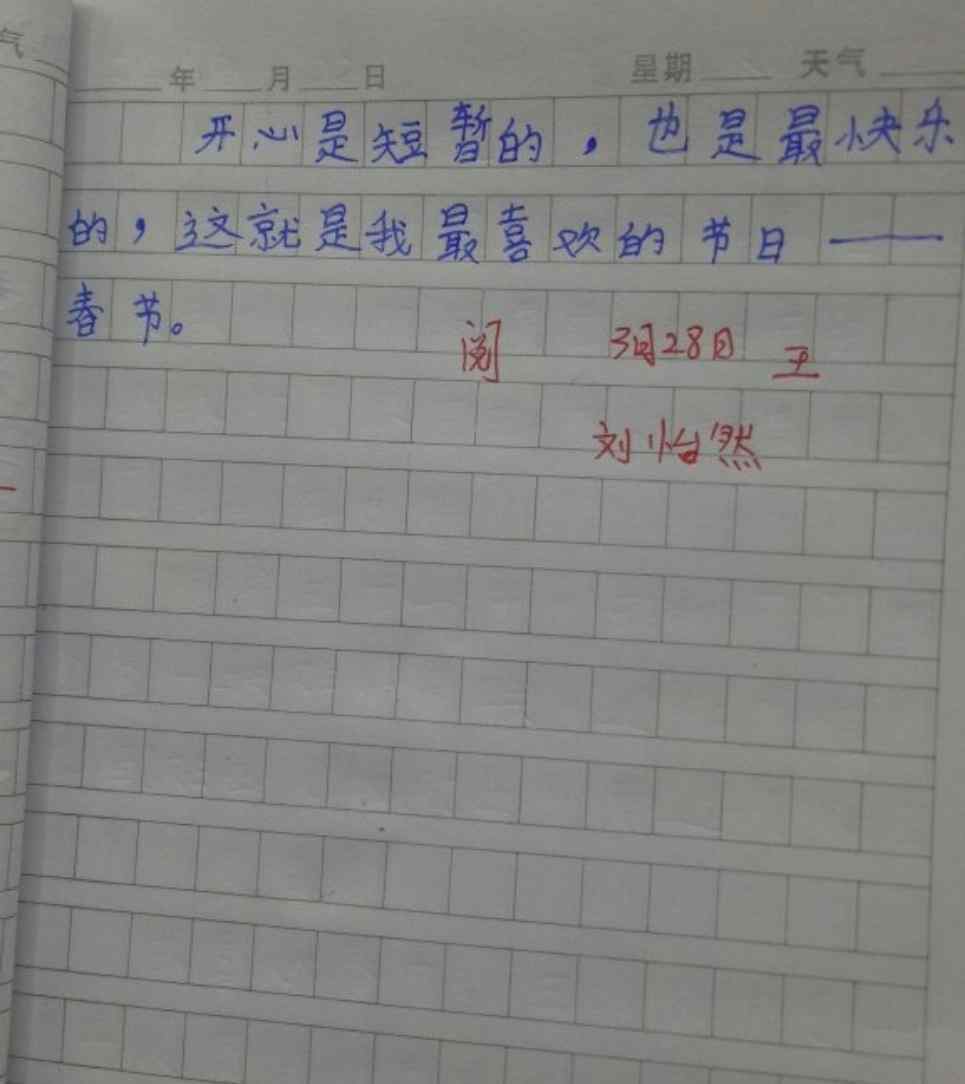 气
年 月 日 星期 天气
开心是短暂的，也是最快乐
的，这就是我最喜欢的节日——
春节。
阅 3月28日 王
刘怡然